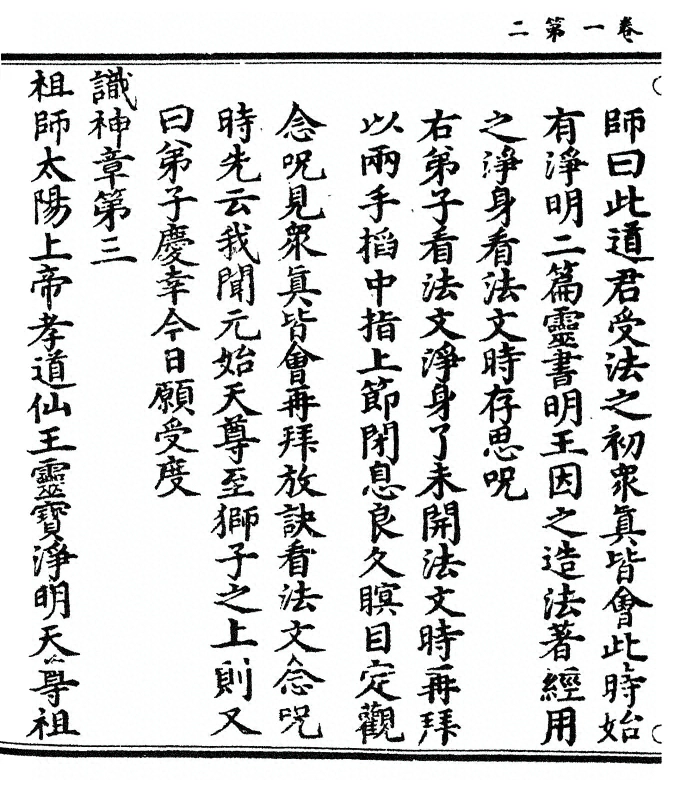 卷一第二
師曰此道君受法之初衆眞皆會此時始
有淨明二篇靈書明王因之造法著經用
之淨身看法文時存思呪
右弟子看法文淨身了未開法文時再拜
以兩手搯中指上節閉息良久瞑目定觀
念呪見衆眞皆會再拜放訣看法文念呪
時先云我聞元始天尊至獅子之上則又
曰弟子慶幸今日願受度
識神章第三
祖師太陽上帝孝道仙王靈寶淨明天尊祖